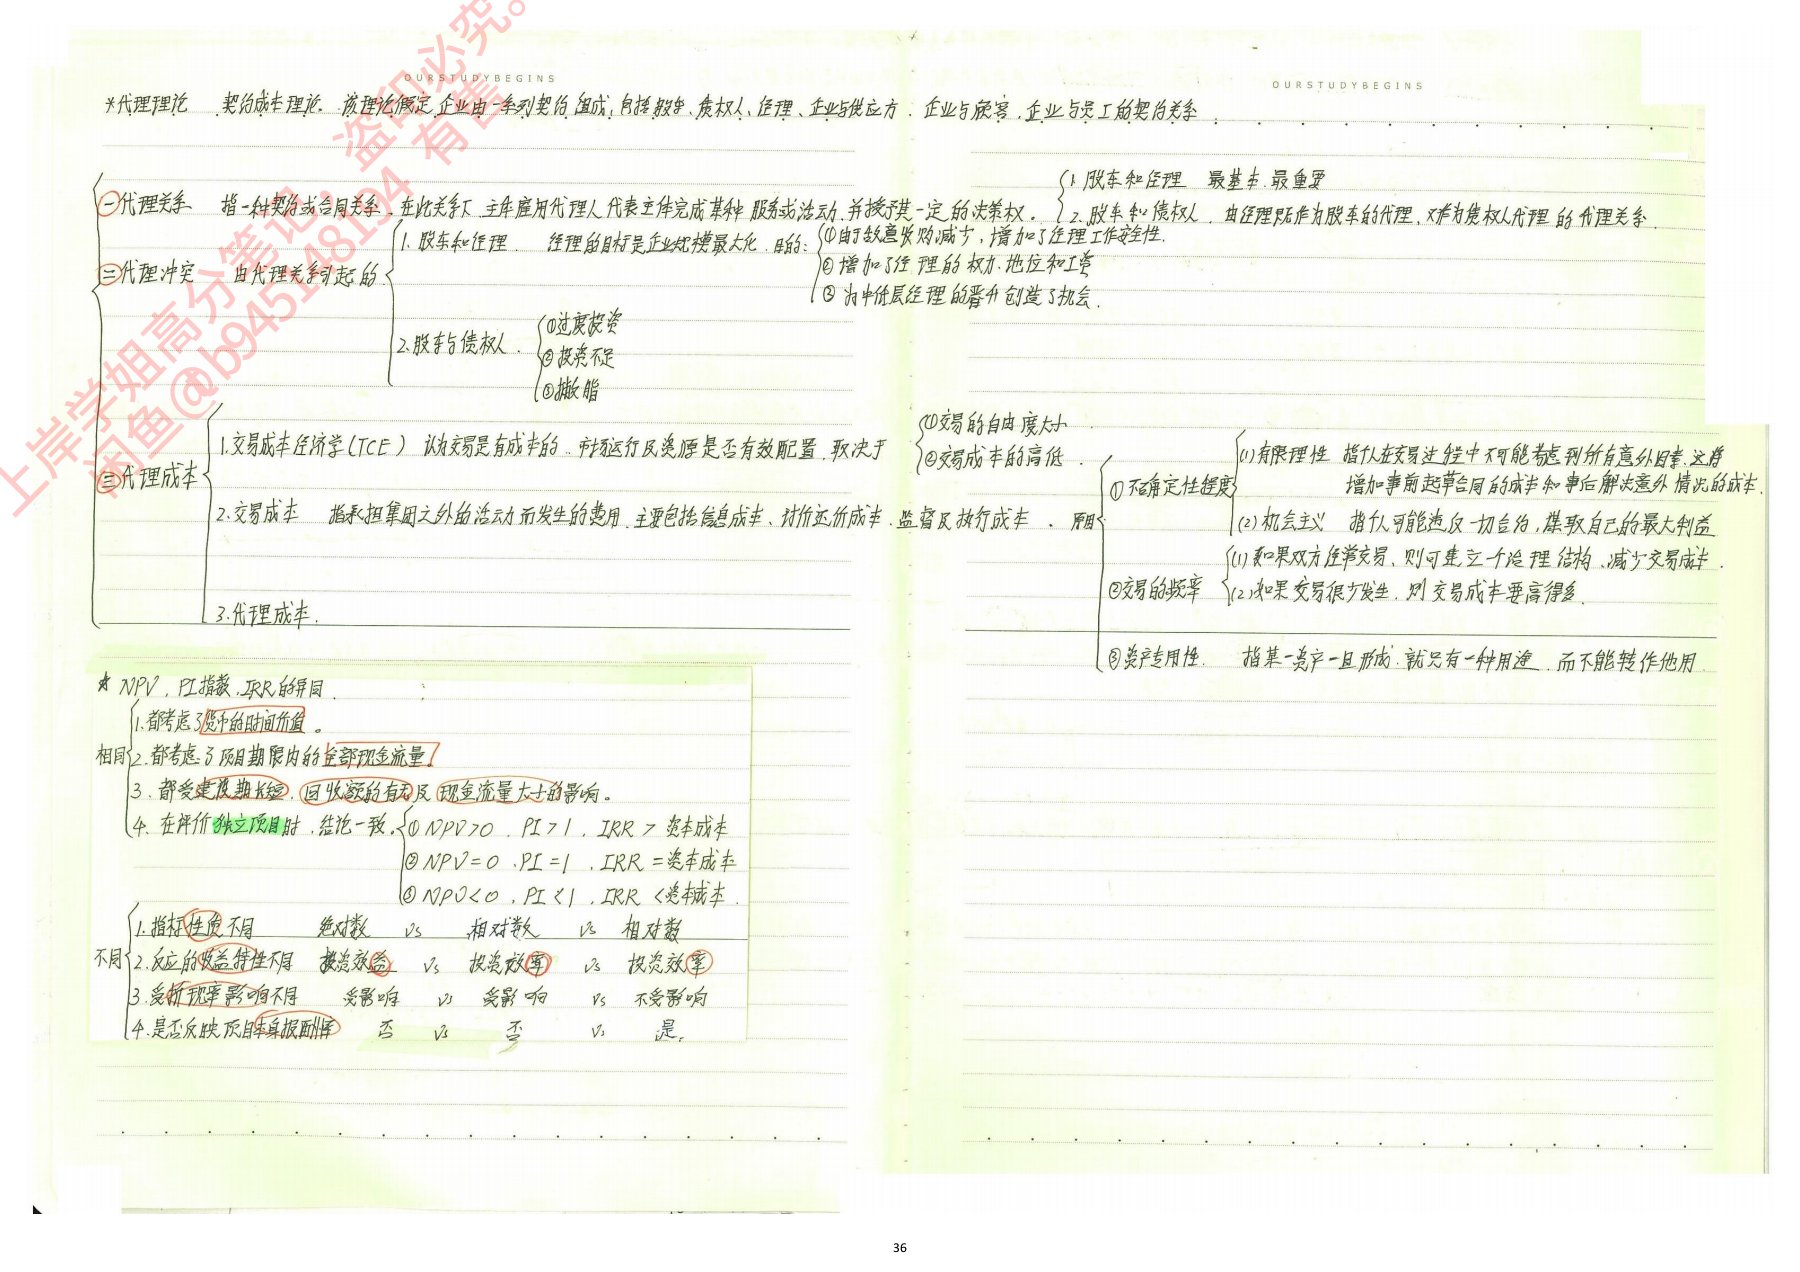 OURSTUDYBEGINS
OURSTUDYBEGINS
*代理理论 契约成本理论. 该理论假定企业由一系列契约组成,包括股东、债权人、经理、企业与供应方、企业与顾客、企业与员工的契约关系
㊀代理关系 指一种契约或合同关系,在此关系下,主体雇用代理人代表主体完成某种服务或活动,并授予其一定的决策权.
1. 股东和经理 最基本.最重要
2. 股东和债权人. 由经理既作为股东的代理、又作为债权人代理的代理关系.
㊁代理冲突 由代理关系引起的.
1. 股东和经理. 经理的目标是企业规模最大化. 目的:
①由于敌意收购减少,增加了经理工作安全性.
②增加了经理的权力.地位和工资
③为中低层经理的晋升创造了机会.
2.股东与债权人.
①过度投资
②投资不足
③撇脂
㊂代理成本
1.交易成本经济学(TCE) 认为交易是有成本的. 市场运行及资源是否有效配置,取决于
①交易的自由度大小
②交易成本的高低.
2.交易成本 指承担集团之外的活动而发生的费用.主要包括信息成本、讨价还价成本、监督及执行成本. 原因
①不确定性程度
(1)有限理性 指个人在交易过程中不可能考虑到所有意外因素.这将
增加事前起草合同的成本和事后解决意外情况的成本.
(2)机会主义 指个人可能违反一切合约,谋取自己的最大利益
②交易的频率
(1)如果双方经常交易.则可建立一个治理结构.减少交易成本.
(2)如果交易很少发生.则交易成本要高得多.
③资产专用性. 指某一资产一旦形成.就只有一种用途.而不能转作他用.
3.代理成本.
☆ NPV, PI指数,IRR的异同.
相同
1.都考虑了货币的时间价值。
2.都考虑了项目期限内的全部现金流量.
3. 都受建设期长短.回收额的有无及现金流量大小的影响。
4. 在评价独立项目时,结论一致.
①NPV>0. PI>1. IRR>资本成本
②NPV=0.PI=1.IRR=资本成本
③NPV<0. PI<1. IRR<资本成本.
不同
1.指标性质不同 绝对数 vs 相对数 vs 相对数
2.反应的收益特性不同 投资效益 vs 投资效率 vs 投资效率
3.受折现率影响不同 受影响 vs 受影响 vs 不受影响
4.是否反映项目本身报酬率 否 vs 否 vs 是.
上岸学姐高分笔记,盗印必究。
闲鱼@b945148194 有售
36